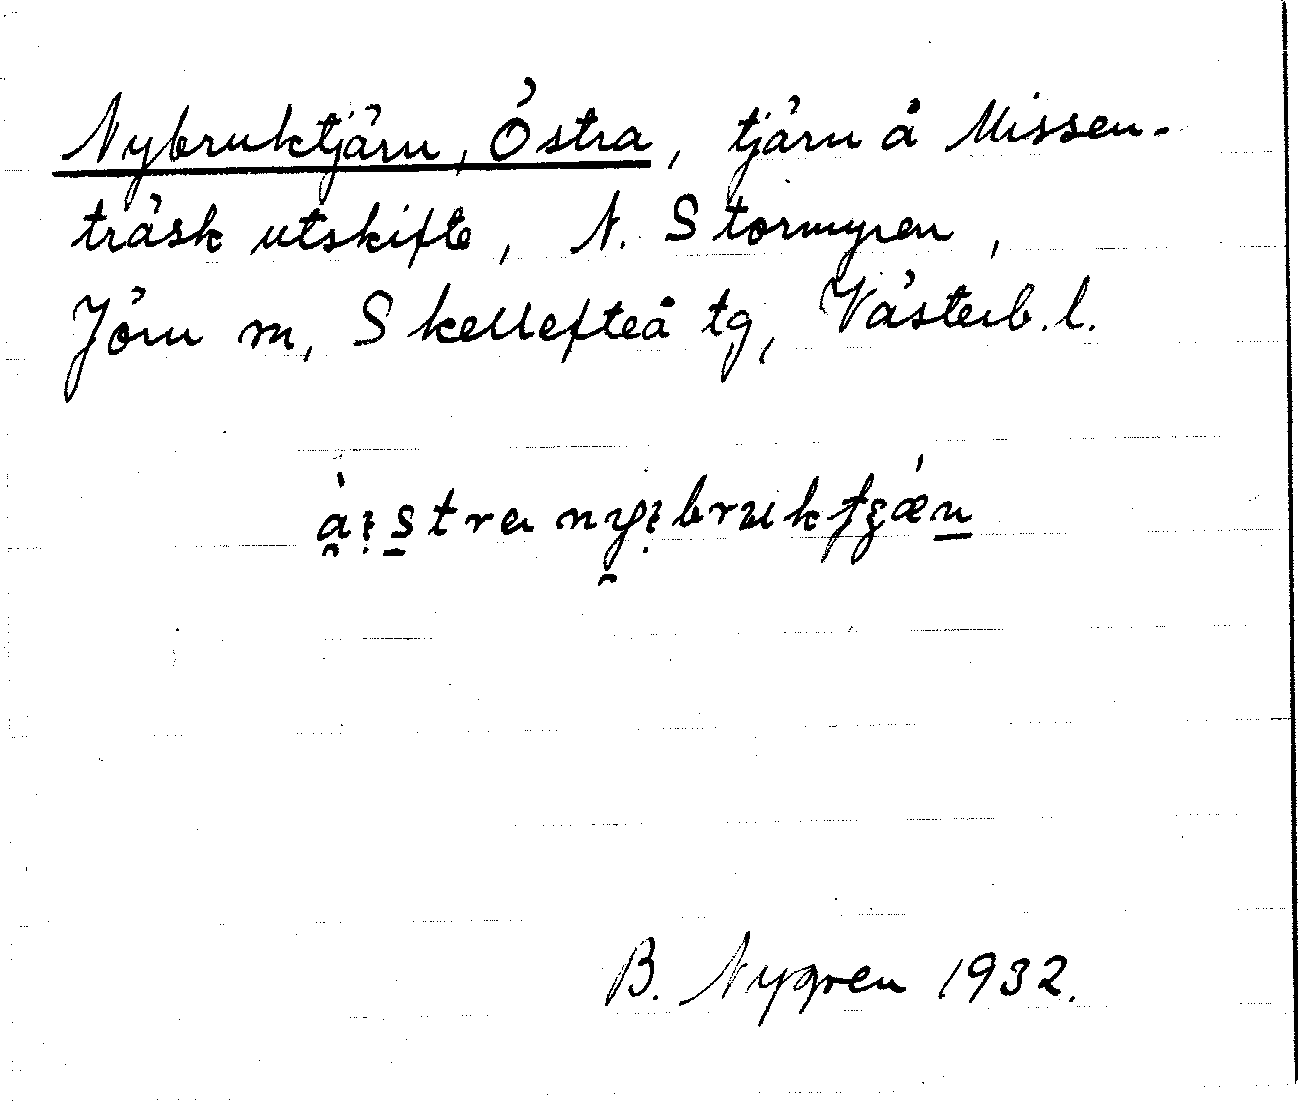 Nybruktjärn, Östra, tjärn å Missen-
träsk utskifte, N. Stormyren,
Jörn m, Skellefteå tg, Västerb. l.
B. Nygren 1932.